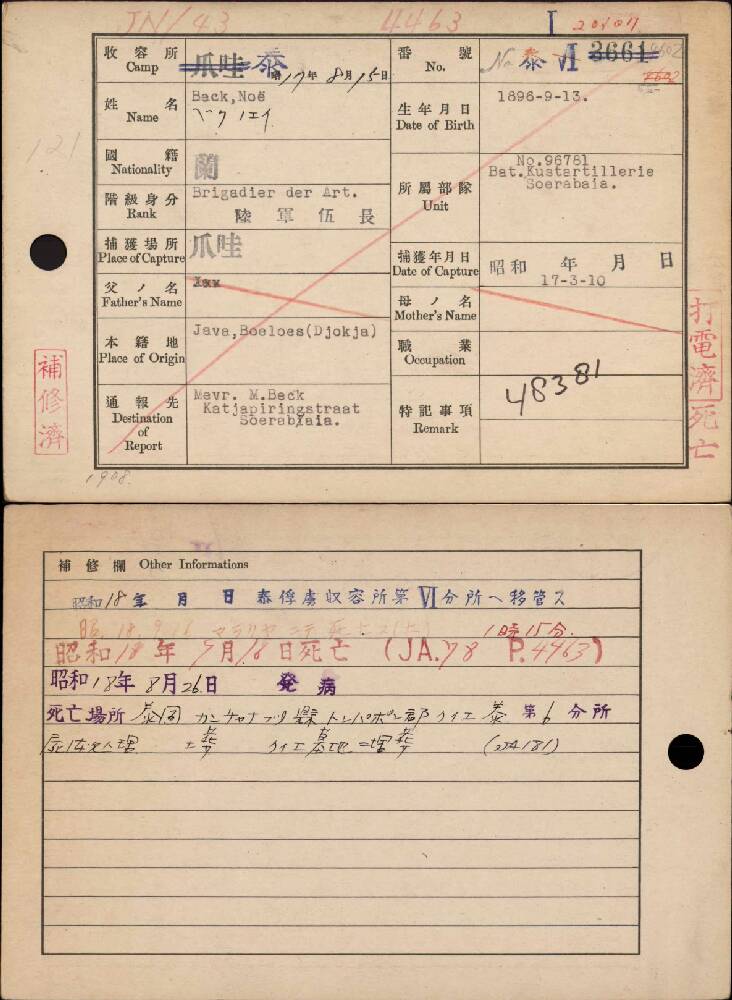 JN/43
4463
I
收容所
Camp
爪哇 泰
17年8月15日
番號
No.
No 泰 VI 3661
4602
姓名
Name
Back,Noë
バク ノエイ
生年月日
Date of Birth
1896-9-13.
121
國籍
Nationality
蘭
階級身分
Rank
Brigadier der Art.
陸軍伍長
所屬部隊
Unit
No.96781
Bat.Kustartillerie
Soerabaia.
捕獲場所
Place of Capture
爪哇
捕獲年月日
Date of Capture
昭和 年 月 日
17-3-10
父ノ名
Father's Name
母ノ名
Mother's Name
本籍地
Place of Origin
Java,Boeloes(Djokja)
職業
Occupation
通報先
Destination
of
Report
Mevr. M.Beck
Katjapiringstraat
Soerabaia.
特記事項
Remark
48381
補修濟
打電濟
死亡
1908.
補修欄 Other Informations
昭和18年 月 日 泰俘虜収容所第VI分所へ移管ス
昭和18年9月16日死亡 (JA.78 P.4463)
1時15分
昭和18年8月26日 発病
死亡場所 泰国 カンチャナブリ県 トンパポン郡 クイエ 泰 第6分所
屍体処理 土葬 クイエ墓地ニ埋葬